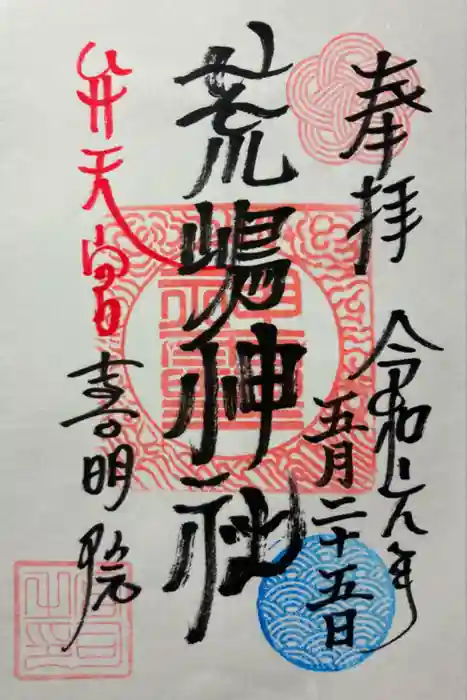 奉拝
令和元年
五月二十五日
荒嶋神社
弁天宮
喜明院